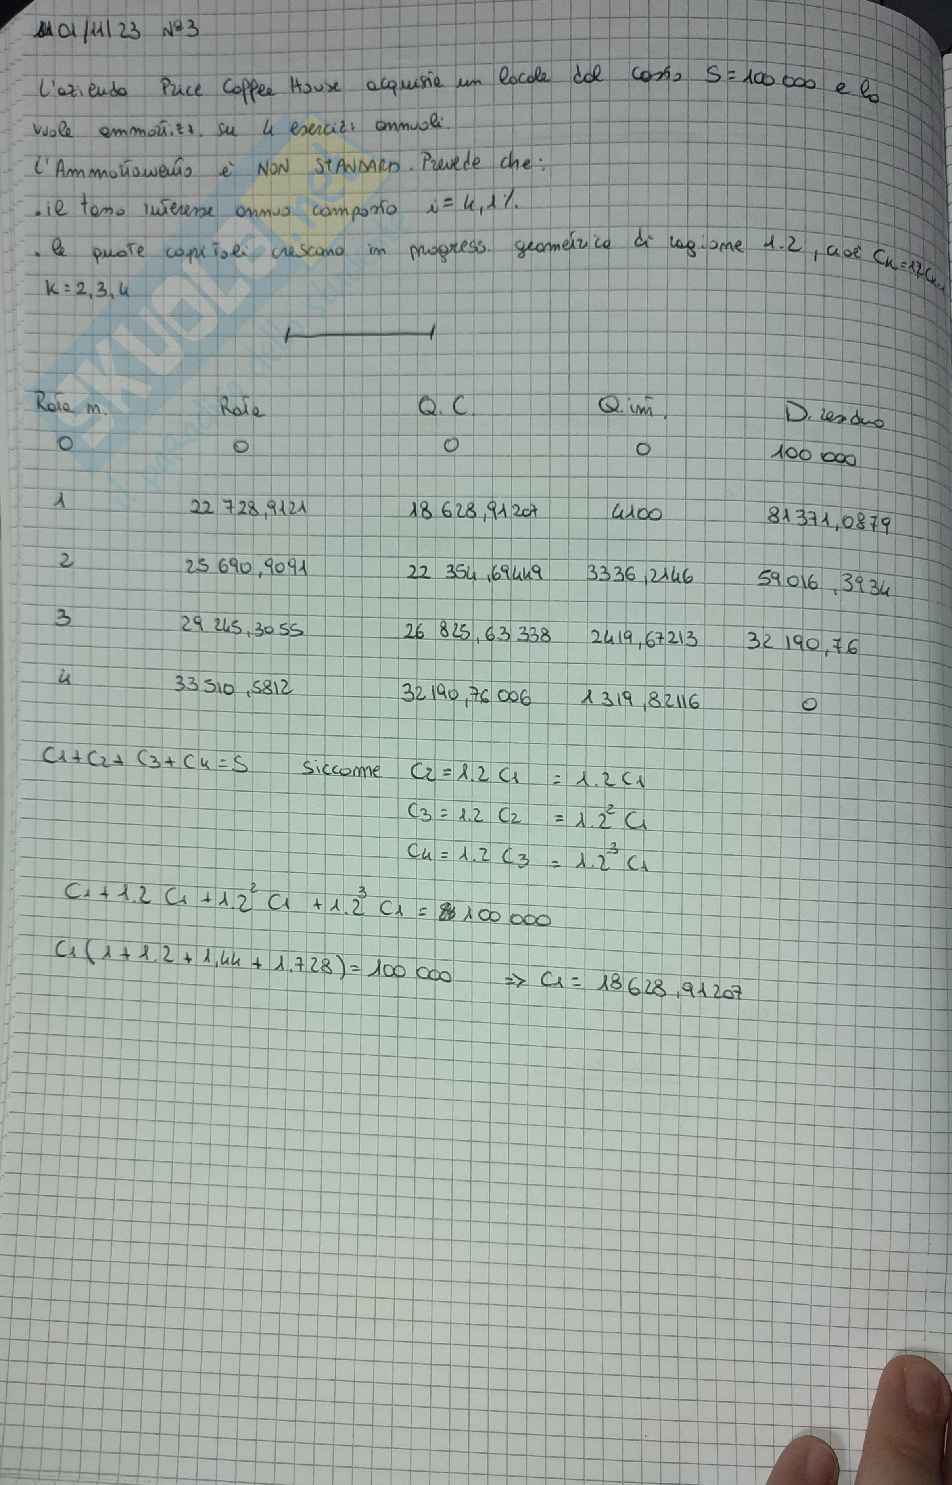 01/11/23 N°3
L'azienda Price Coffee House acquisie un locale dal costo S=100 000 e lo
vuole ammortizz. su 4 esercizi annuali.
L'Ammortamento è NON STANDARD. Prevede che:
. il tasso interesse annuo composto i=4,1%.
. le quote capitali crescano in progress. geometrica di ragione 1.2, cioè Ck=1.2Ck-1
K=2,3,4
Rata n. Rata Q.C. Q.int. D.residuo
0 0 0 0 100 000
1 22 728,9121 18 628,91207 4100 81371,0879
2 25 690,9091 22 354,69449 3336,2146 59016,3934
3 29 245,3055 26 825,63338 2419,67213 32 190,76
4 33510,5812 32190,76006 1319,82116 0
C1+C2+C3+C4=S siccome C2=1.2 C1 = 1.2 C1
C3=1.2 C2 = 1.2² C1
C4=1.2 C3 = 1.2³ C1
C1+1.2 C1+1.2² C1+1.2³ C1=100 000
C1(1+1.2+1,44+1.728)=100 000 => C1=18628,91207
SKUOLA.net